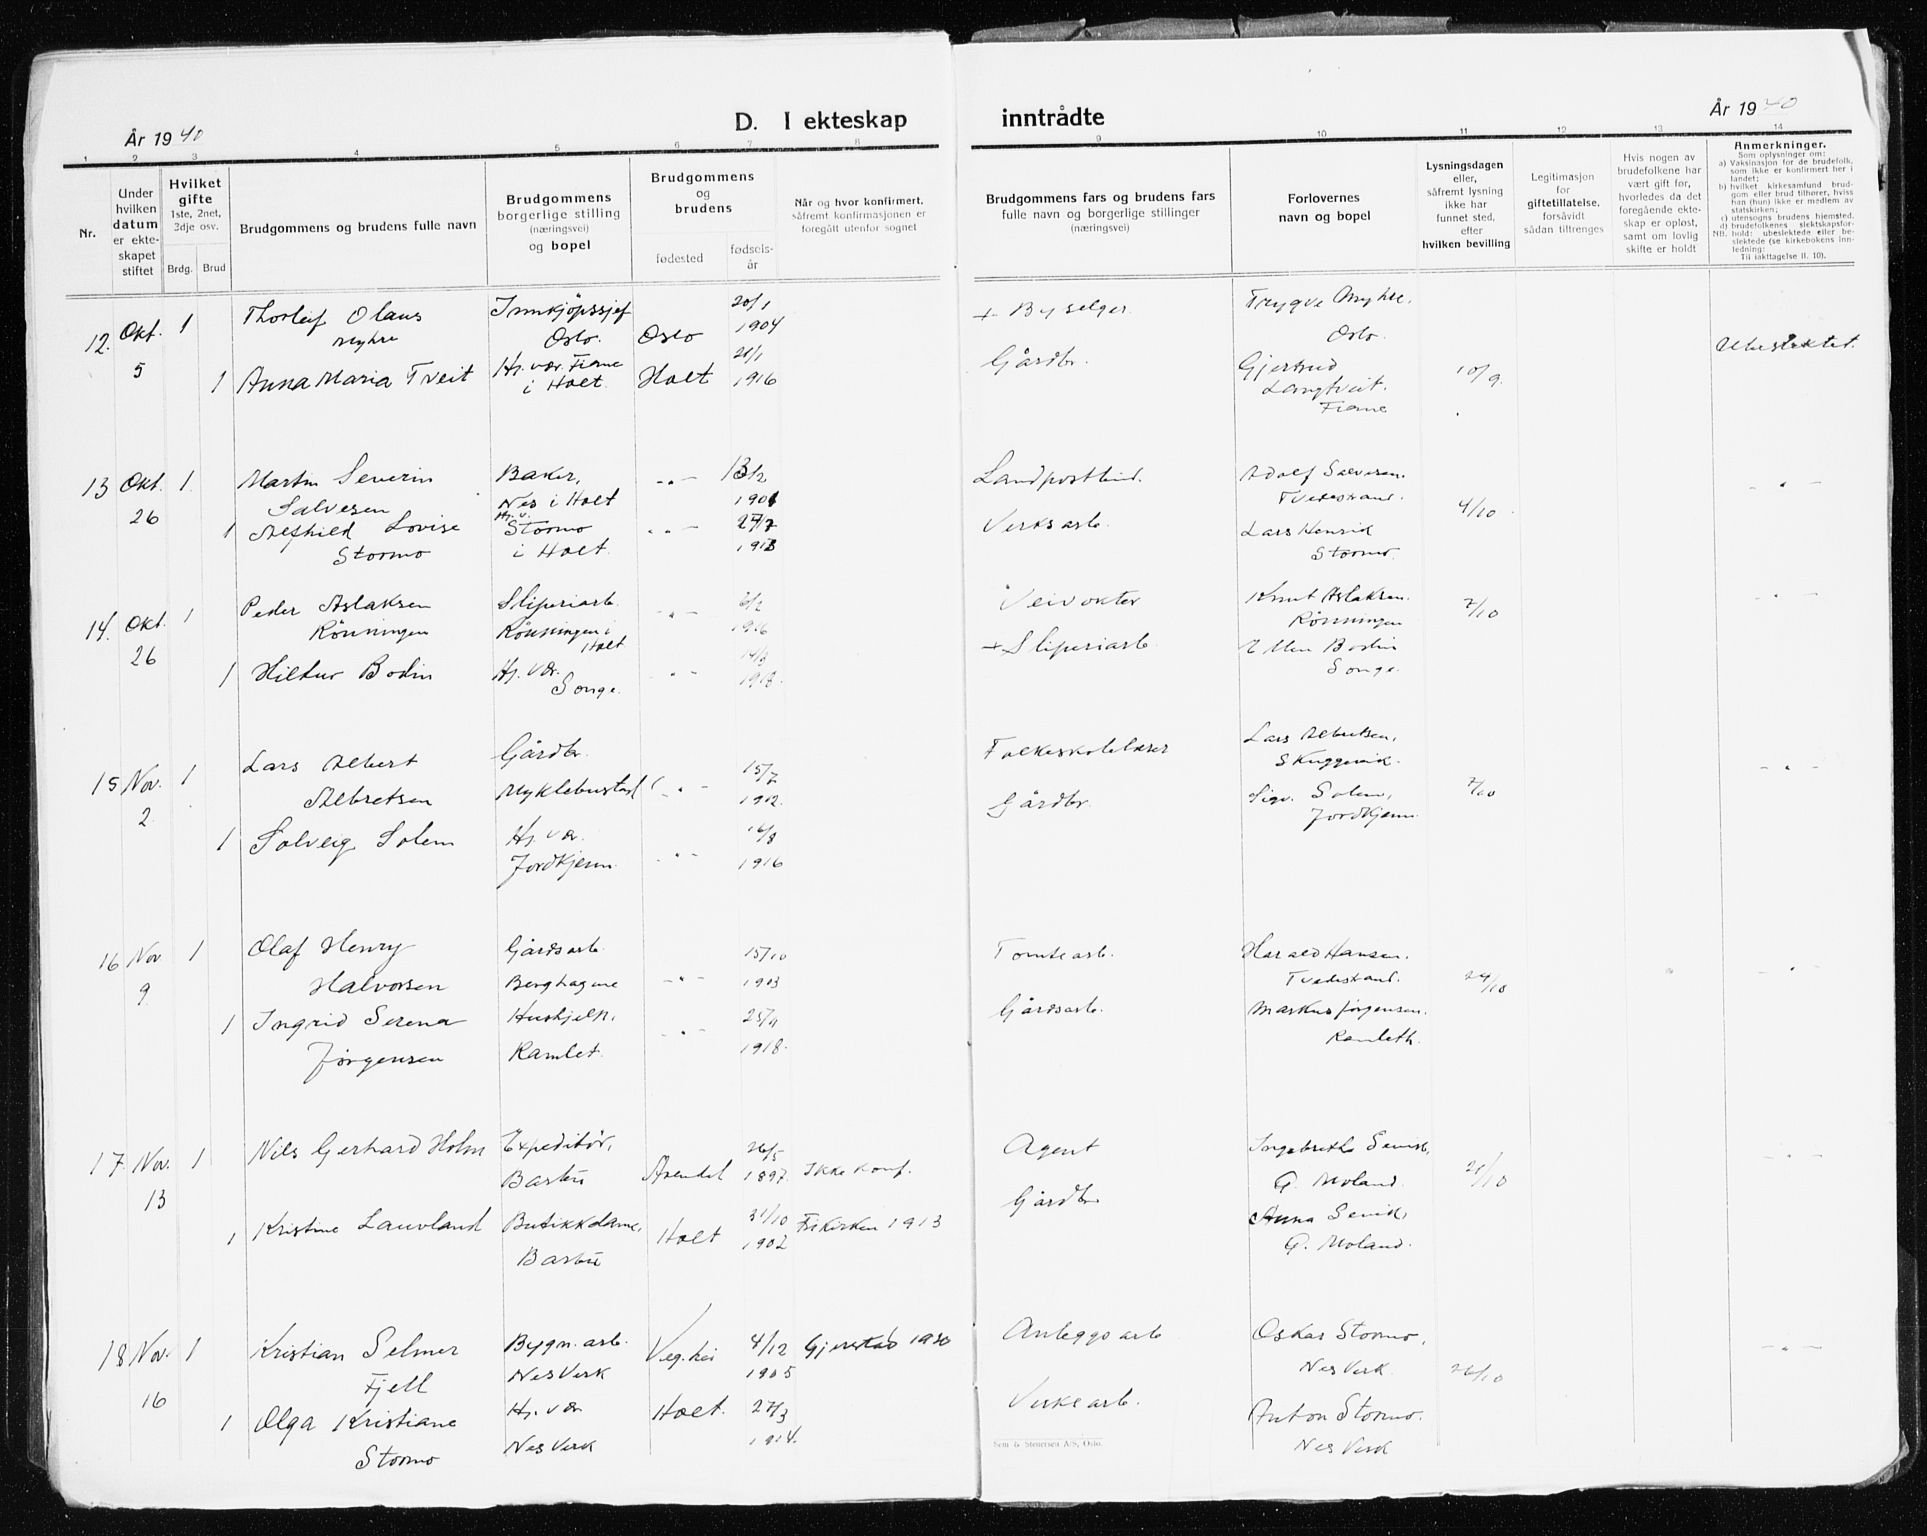 År 1940
D. I ekteskap
inntrådte
År 1940
1 2 3 4 5 6 7 8 9 10 11 12 13 14
Nr.
Under
hvilken
datum
er ekte-
skapet
stiftet
Hvilket
gifte
1ste, 2net,
3dje osv.
Brdg. Brud
Brudgommens og brudens fulle navn
Brudgommens
borgerlige stilling
(næringsvei)
og bopel
Brudgommens
og
brudens
fødested
fødsels-
år
Når og hvor konfirmert,
såfremt konfirmasjonen er
foregått utenfor sognet
Brudgommens fars og brudens fars
fulle navn og borgerlige stillinger
(næringsvei)
Forlovernes
navn og bopel
Lysningsdagen
eller,
såfremt lysning
ikke har
funnet sted,
efter
hvilken bevilling
Legitimasjon
for
giftetillatelse,
forsåvidt
sådan tiltrenges
Hvis nogen av
brudefolkene har
vært gift før,
hvorledes da det
foregående ekte-
skap er opløst,
samt om lovlig
skifte er holdt
Anmerkninger.
Som oplysninger om:
a) Vaksinasjon for de brudefolk,
som ikke er konfirmert her i
landet;
b) hvilket kirkesamfund brud-
gom eller brud tilhører, hviss
han (hun) ikke er medlem av
statskirken;
c) utensogns brudens hjemsted.
d) brudefolkenes slektskapsfor-
NB. hold: ubeslektede eller be-
slektede (se kirkebokens inn-
ledning:
Til iakttagelse II. 10).
12. Okt. 5 1 Thorleif Olaus
Myhre
Innkjøpssjef
Oslo.
Oslo
20/1
1904
+ Byselger
Trygve Myhre.
Oslo.
10/9.
Ubeslektet.
1 Anna Maria Tveit
Hj. vær. Fiane
i Holt.
Holt
1916
Gårdbr.
Gjertrud
Langtveit.
Fiane
13 Okt. 26 1 Martin Severin
Salvesen
Baker,
Nes i Holt
- " -
Landpostbud.
Adolf Salvesen.
Tvedestrand.
4/10
- " -
1 Alfhild Lovise
Stormo
Hj. v.
Stormo
i Holt.
- " -
Verksarb.
Lars Henrik
Stormo.
14. Okt. 26 1 Peder Aslaksen
Rönningen
Sliperiarb.
Rönningen i
Holt
- " -
1916
Veivokter
Knut Aslaksen.
Rönningen
7/10
- " -
1 Hildur Bodin
Hj. vær.
Songe.
- " -
1918.
+ Sliperiarb.
Ellen Bodin
Songe.
15 Nov. 2. 1 Lars Albert
Albretsen
Gårdbr.
Myklebustad
- " -
15/7
1902.
Folkeskolelærer
Lars Albretsen,
Skuggevik.
7/10
- " -
1 Solveig Solem
Hj. vær.
Jordkjenn.
- " -
16/8
1916
Gårdbr.
Sigv. Solem,
Jordkjenn
16 Nov 9. 1 Olaf Henry
Halvorsen
Gårdsarb.
Berghagene
- " -
15/10
1903
Tomtearb.
Harald Hansen.
Tvedestrand.
24/10
- " -
1 Ingrid Serena
Jørgensen
Hushjelp.
Ramlet.
- " -
1918.
Gårdsarb.
Markus Jørgensen.
Ramleth.
17. Nov. 13 1 Nils Gerhard Holm
Expeditör,
Barbu
Arendal
26/5
1897.
Ikke konf.
Agent
G. Moland.
21/10
- " -
1 Kristine Lauvland
Butikkdame,
Barbu
Holt
31/10
1902
Frikirken 1913
Gårdbr
Anna
G. Moland.
18 Nov. 16 1 Kristian Selmer
Fjell
Bygn. arb.
Nes Verk
Veg.hei
4/12
1905
Gjerstad 1920
Anleggsarb
Oskar Stormo,
Nes Verk.
26/10
- " -
1 Olga Kristiane
Stormo
Hj. vær
Nes Verk
Holt.
27/3
1914.
Verksarb.
Anton Stormo.
Nes Verk
Sem & Stenersen A/S, Oslo.